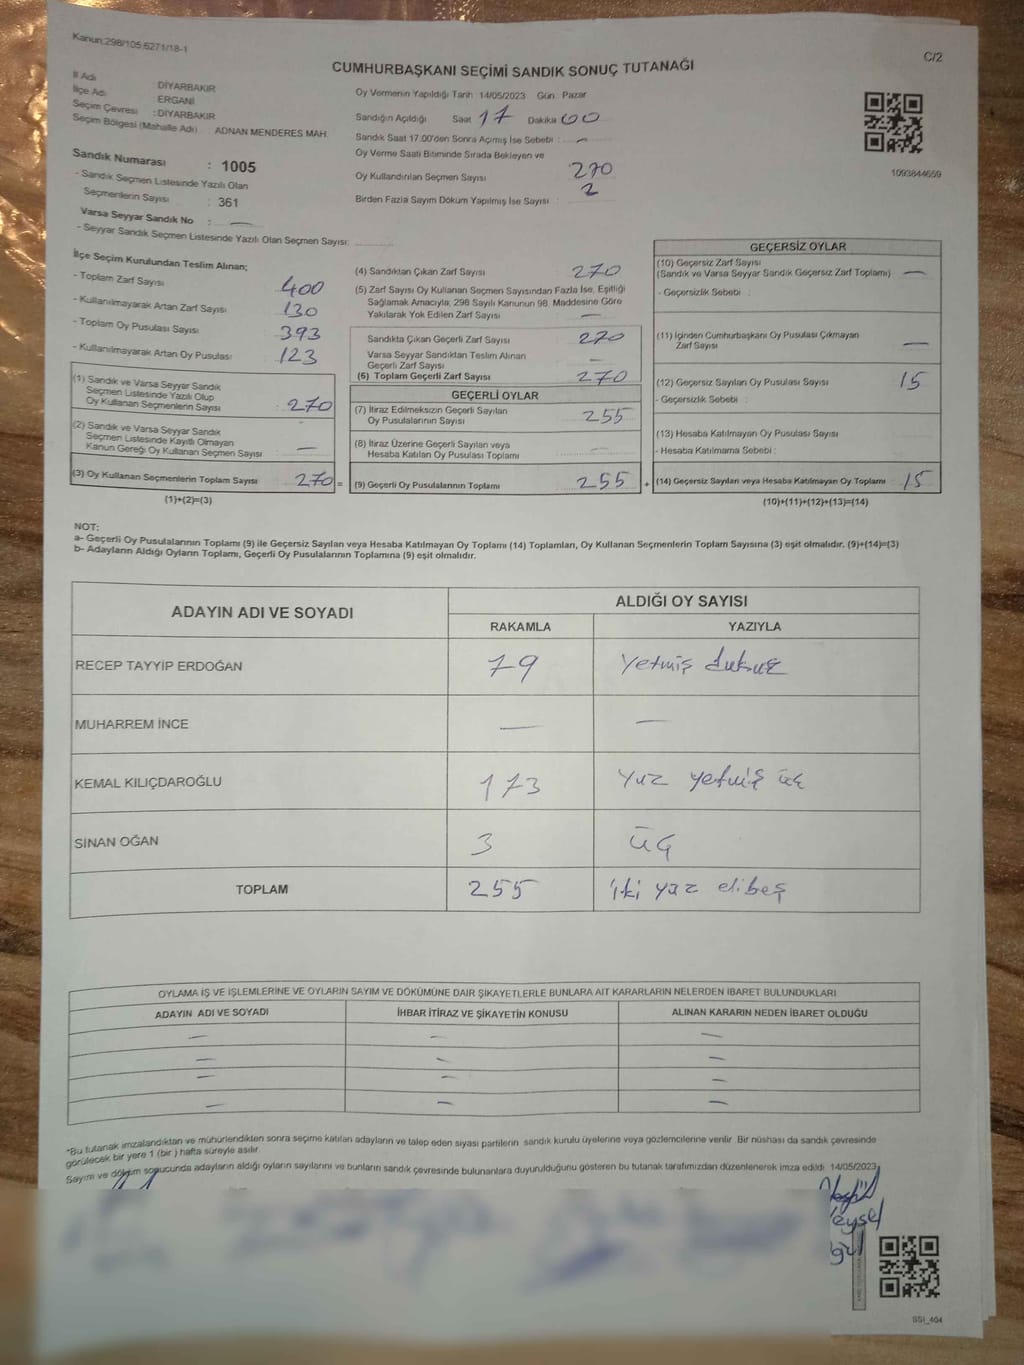 Kanun:298/105;6271/18-1
C/2
CUMHURBAŞKANI SEÇİMİ SANDIK SONUÇ TUTANAĞI
İl Adı : DİYARBAKIR
İlçe Adı : ERGANİ
Seçim Çevresi : DİYARBAKIR
Seçim Bölgesi (Mahalle Adı) : ADNAN MENDERES MAH.
Sandık Numarası : 1005
- Sandık Seçmen Listesinde Yazılı Olan
Seçmenlerin Sayısı : 361
Varsa Seyyar Sandık No : —
- Seyyar Sandık Seçmen Listesinde Yazılı Olan Seçmen Sayısı:
Oy Vermenin Yapıldığı Tarih 14/05/2023 Gün: Pazar
Sandığın Açıldığı Saat 17 Dakika 00
Sandık Saat 17.00'den Sonra Açımış İse Sebebi : —
Oy Verme Saati Bitiminde Sırada Bekleyen ve
Oy Kullandırılan Seçmen Sayısı 270
Birden Fazla Sayım Döküm Yapılmış İse Sayısı 2
1093844659
İlçe Seçim Kurulundan Teslim Alınan;
- Toplam Zarf Sayısı 400
- Kullanılmayarak Artan Zarf Sayısı 130
- Toplam Oy Pusulası Sayısı 393
- Kullanılmayarak Artan Oy Pusulası 123
(1) Sandık ve Varsa Seyyar Sandık
Seçmen Listesinde Yazılı Olup
Oy Kullanan Seçmenlerin Sayısı 270
(2) Sandık ve Varsa Seyyar Sandık
Seçmen Listesinde Kayıtlı Olmayan
Kanun Gereği Oy Kullanan Seçmen Sayısı —
(3) Oy Kullanan Seçmenlerin Toplam Sayısı 270 =
(1)+(2)=(3)
(4) Sandıktan Çıkan Zarf Sayısı 270
(5) Zarf Sayısı Oy Kullanan Seçmen Sayısından Fazla İse, Eşitliği
Sağlamak Amacıyla, 298 Sayılı Kanunun 98. Maddesine Göre
Yakılarak Yok Edilen Zarf Sayısı —
Sandıkta Çıkan Geçerli Zarf Sayısı 270
Varsa Seyyar Sandıktan Teslim Alınan
Geçerli Zarf Sayısı —
(6) Toplam Geçerli Zarf Sayısı 270
GEÇERLİ OYLAR
(7) İtiraz Edilmeksizin Geçerli Sayılan
Oy Pusulalarının Sayısı 255
(8) İtiraz Üzerine Geçerli Sayılan veya
Hesaba Katılan Oy Pusulası Toplamı —
(9) Geçerli Oy Pusulalarının Toplamı 255 +
GEÇERSİZ OYLAR
(10) Geçersiz Zarf Sayısı
(Sandık ve Varsa Seyyar Sandık Geçersiz Zarf Toplamı) —
- Geçersizlik Sebebi :
(11) İçinden Cumhurbaşkanı Oy Pusulası Çıkmayan
Zarf Sayısı —
(12) Geçersiz Sayılan Oy Pusulası Sayısı 15
- Geçersizlik Sebebi :
(13) Hesaba Katılmayan Oy Pusulası Sayısı
- Hesaba Katılmama Sebebi :
(14) Geçersiz Sayılan veya Hesaba Katılmayan Oy Toplamı 15
(10)+(11)+(12)+(13)=(14)
NOT:
a- Geçerli Oy Pusulalarının Toplamı (9) ile Geçersiz Sayılan veya Hesaba Katılmayan Oy Toplamı (14) Toplamları, Oy Kullanan Seçmenlerin Toplam Sayısına (3) eşit olmalıdır. (9)+(14)=(3)
b- Adayların Aldığı Oyların Toplamı, Geçerli Oy Pusulalarının Toplamına (9) eşit olmalıdır.
ADAYIN ADI VE SOYADI
ALDIĞI OY SAYISI
RAKAMLA YAZIYLA
RECEP TAYYİP ERDOĞAN 79 Yetmiş dukuz
MUHARREM İNCE — —
KEMAL KILIÇDAROĞLU 173 yuz yetmiş üç
SİNAN OĞAN 3 üç
TOPLAM 255 iki yüz elibeş
OYLAMA İŞ VE İŞLEMLERİNE VE OYLARIN SAYIM VE DÖKÜMÜNE DAİR ŞİKAYETLERLE BUNLARA AİT KARARLARIN NELERDEN İBARET BULUNDUKLARI
ADAYIN ADI VE SOYADI İHBAR İTİRAZ VE ŞİKAYETİN KONUSU ALINAN KARARIN NEDEN İBARET OLDUĞU
— — —
— — —
— — —
— — —
*Bu tutanak imzalandıktan ve mühürlendikten sonra seçime katılan adayların ve talep eden siyasi partilerin sandık kurulu üyelerine veya gözlemcilerine verilir. Bir nüshası da sandık çevresinde
görülecek bir yere 1 (bir) hafta süreyle asılır.
Sayım ve döküm sonucunda adayların aldığı oyların sayılarını ve bunların sandık çevresinde bulunanlara duyurulduğunu gösteren bu tutanak tarafımızdan düzenlenerek imza edildi. 14/05/2023
Veysel
gül
SSI_404